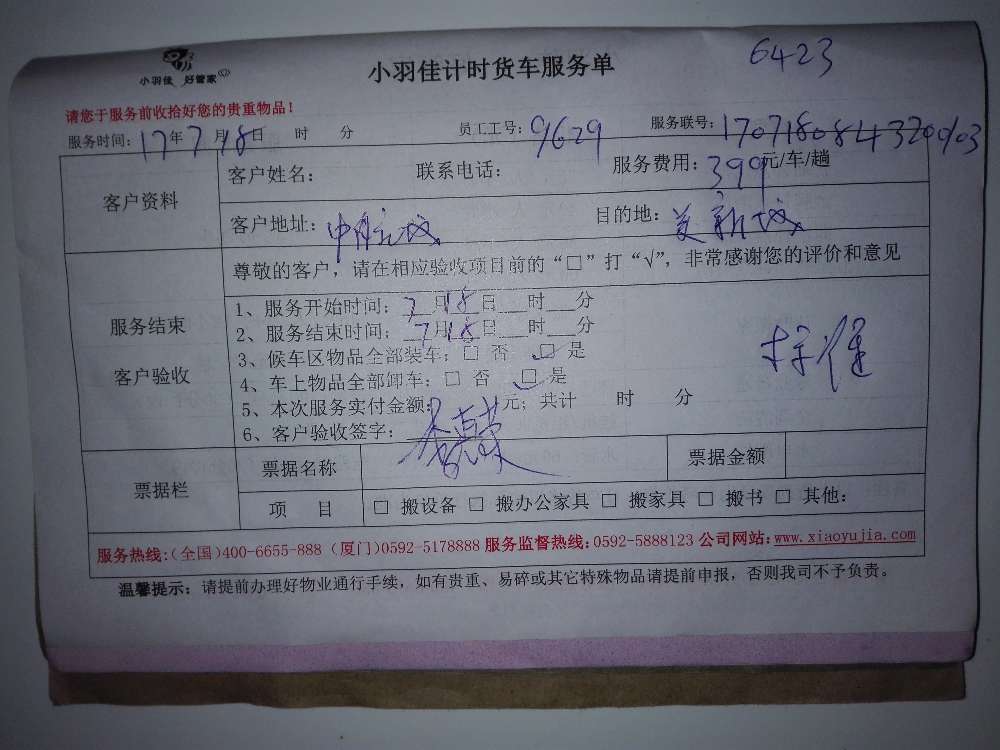 小羽佳 好管家
小羽佳计时货车服务单
6423
请您于服务前收拾好您的贵重物品！
服务时间：17年7月18日 时 分 员工工号：9629 服务联号：170718084320903
客户资料
客户姓名： 联系电话： 服务费用：399元/车/趟
客户地址： 目的地：美新城
服务结束
客户验收
尊敬的客户，请在相应验收项目前的“□”打“√”，非常感谢您的评价和意见
1、服务开始时间：7月18日___时___分
2、服务结束时间：7月18日___时___分
3、候车区物品全部装车：□ 否 ☑ 是
4、车上物品全部卸车：□ 否 ☑ 是
5、本次服务实付金额： 元；共计 时 分
6、客户验收签字：
票据栏
票据名称 票据金额
项 目 □ 搬设备 □ 搬办公家具 □ 搬家具 □ 搬书 □ 其他：
服务热线：（全国）400-6655-888（厦门）0592-5178888 服务监督热线：0592-5888123 公司网站：www.xiaoyujia.com
温馨提示：请提前办理好物业通行手续，如有贵重、易碎或其它特殊物品请提前申报，否则我司不予负责。